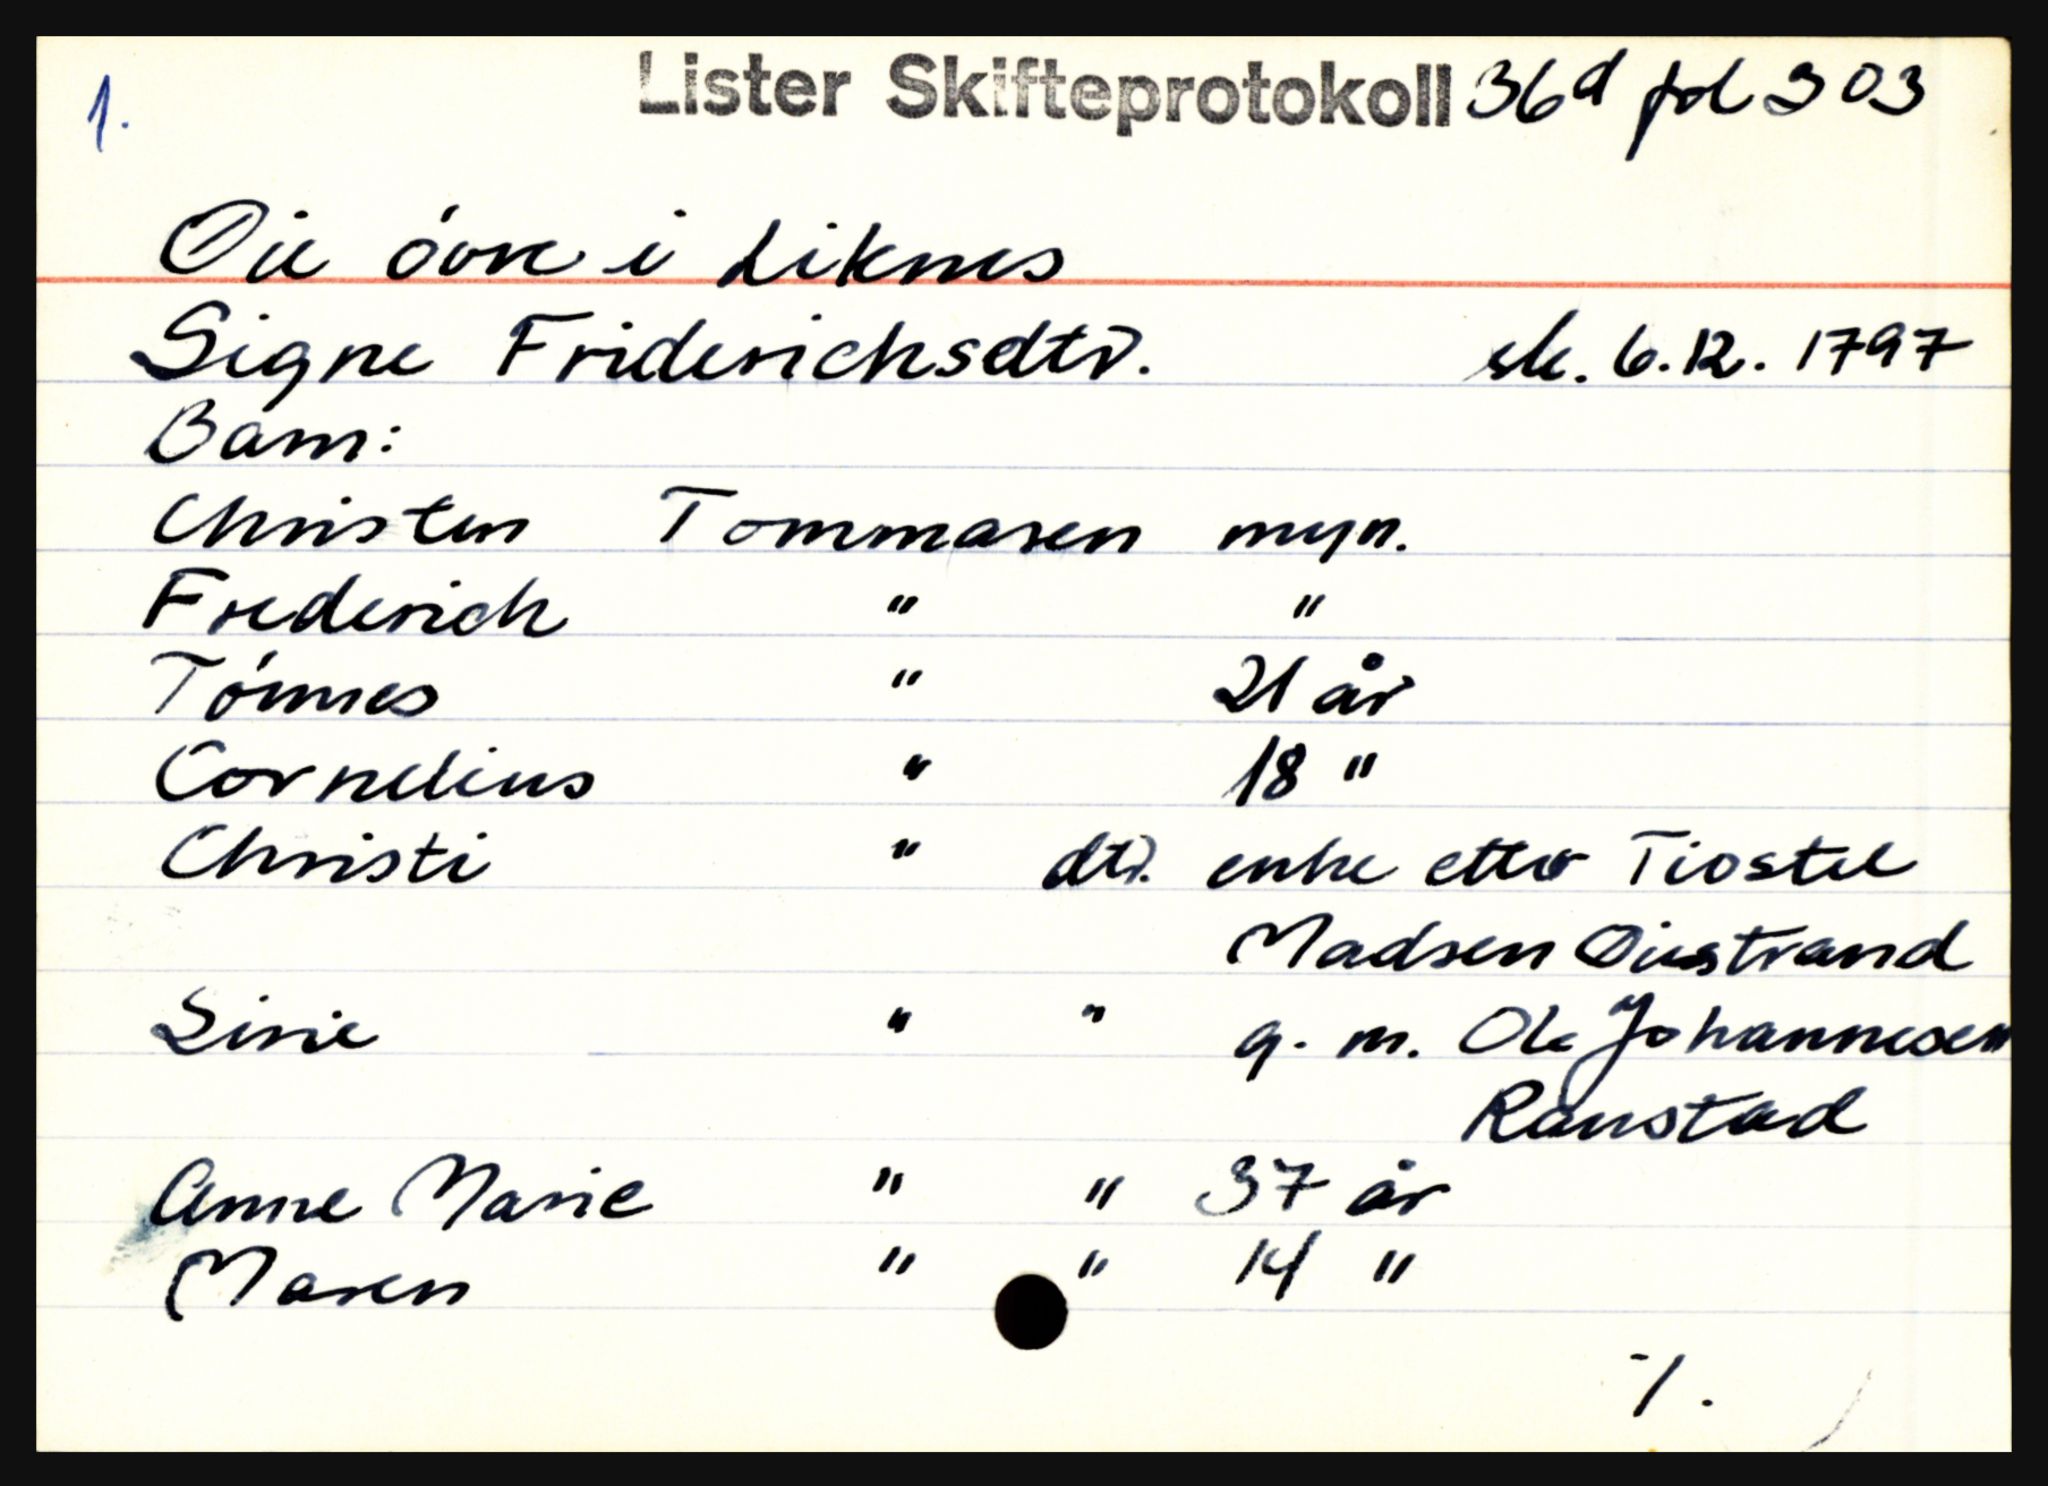 1. Lister Skifteprotokoll 36d fol 303
Øie övre i Liknes
Signe Friderichsdtr. sk. 6.12. 1797
Barn:
Christen Tommasen myn.
Frederich " "
Tönnes " 21 år
Cornelius " 18 "
Christi " dtr. enke etter Tiostel
Madsen Øiestrand
Sirie " " g. m. Ole Johannesen
Raustad
Anne Marie " " 37 år
Maren " " 14 "
-/.